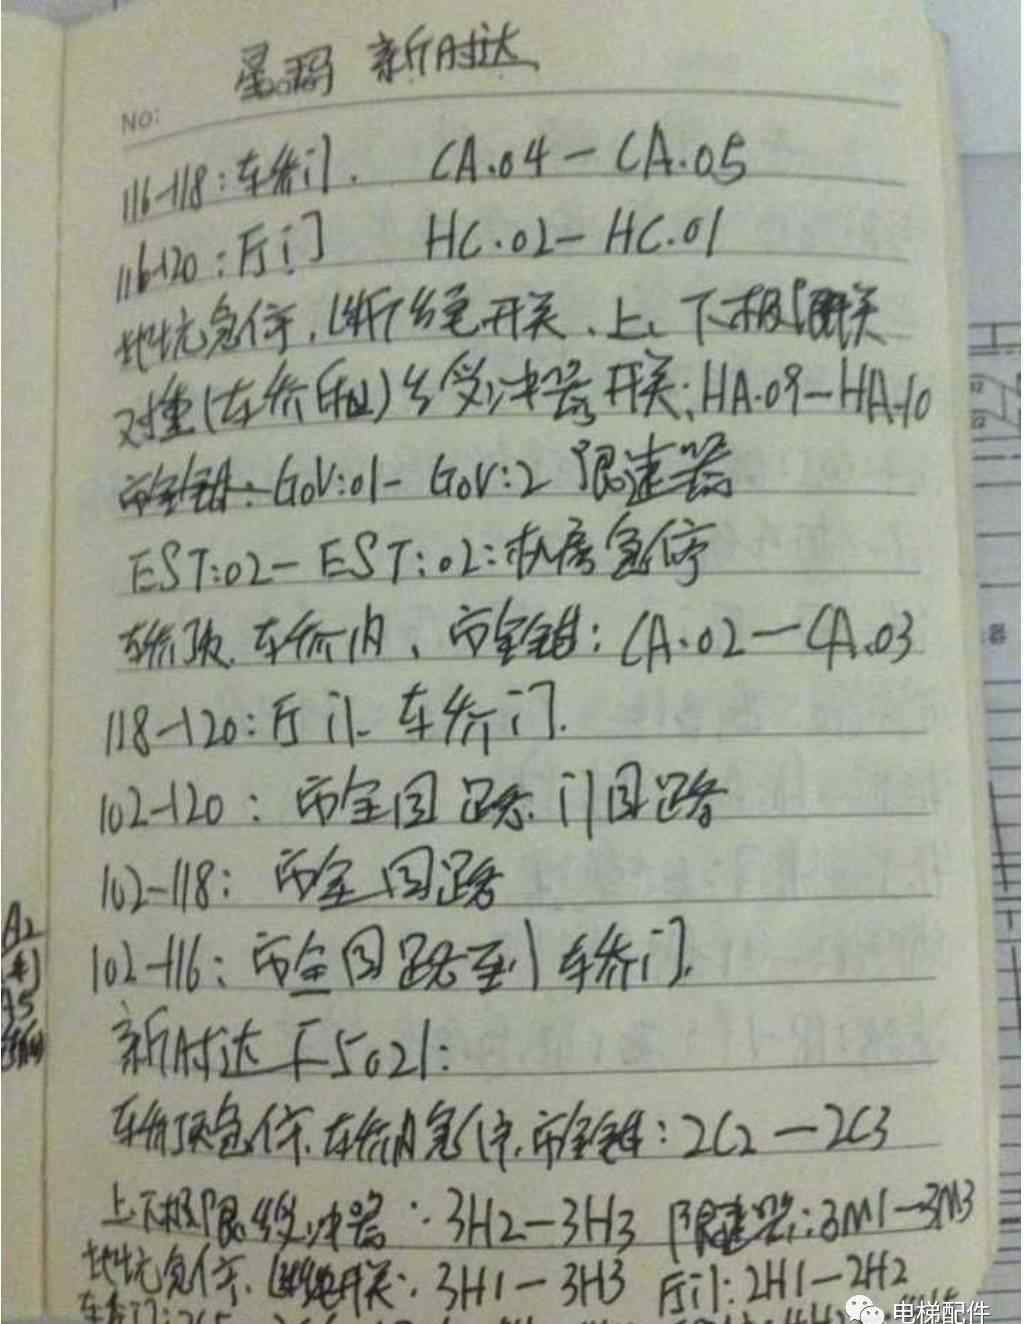 星玛 新时达
No:
116-118:车轿门. CA.04-CA.05
116-120:厅门 HC.02-HC.01
地坑急停.断绳开关、上、下极限开关
对重(车轿和)缓冲器开关:HA.09-HA.10
安全钳:GOV:01-GOV:2 限速器
EST:02-EST:02:机房急停
轿顶.车轿内、安全钳:CA.02-CA.03
118-120:厅门.车轿门.
102-120:安全回路.门回路
102-118:安全回路
102-116:安全回路至车轿门.
A2
新时达F5021:
车轿顶急停.车轿内急停.安全钳:2C2-2C3
上下极限缓冲器:3H2-3H3 限速器:3M1-3M3
地坑急停.断绳开关:3H1-3H3 厅门:2H1-2H2
车轿门:
电梯配件